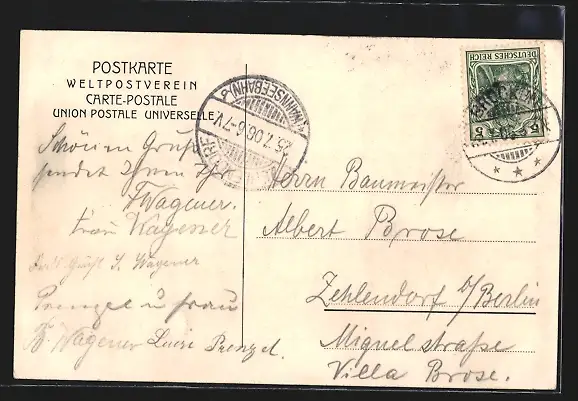 POSTKARTE
WELTPOSTVEREIN
CARTE-POSTALE
UNION POSTALE UNIVERSELLE
Schönen Gruß
sendet Ihnen Ihr
F Wagener.
Frau Wagener
Gruß Wagener
Prenzel u Frau
Wagener Lucie Prenzel.
(WANNSEEBAHN)
25.7.06.6-7V.
DEUTSCHES REICH
5 5
Herrn Baumeister
Albert Brose
Zehlendorf b/Berlin
Miquelstraße
Villa Brose.